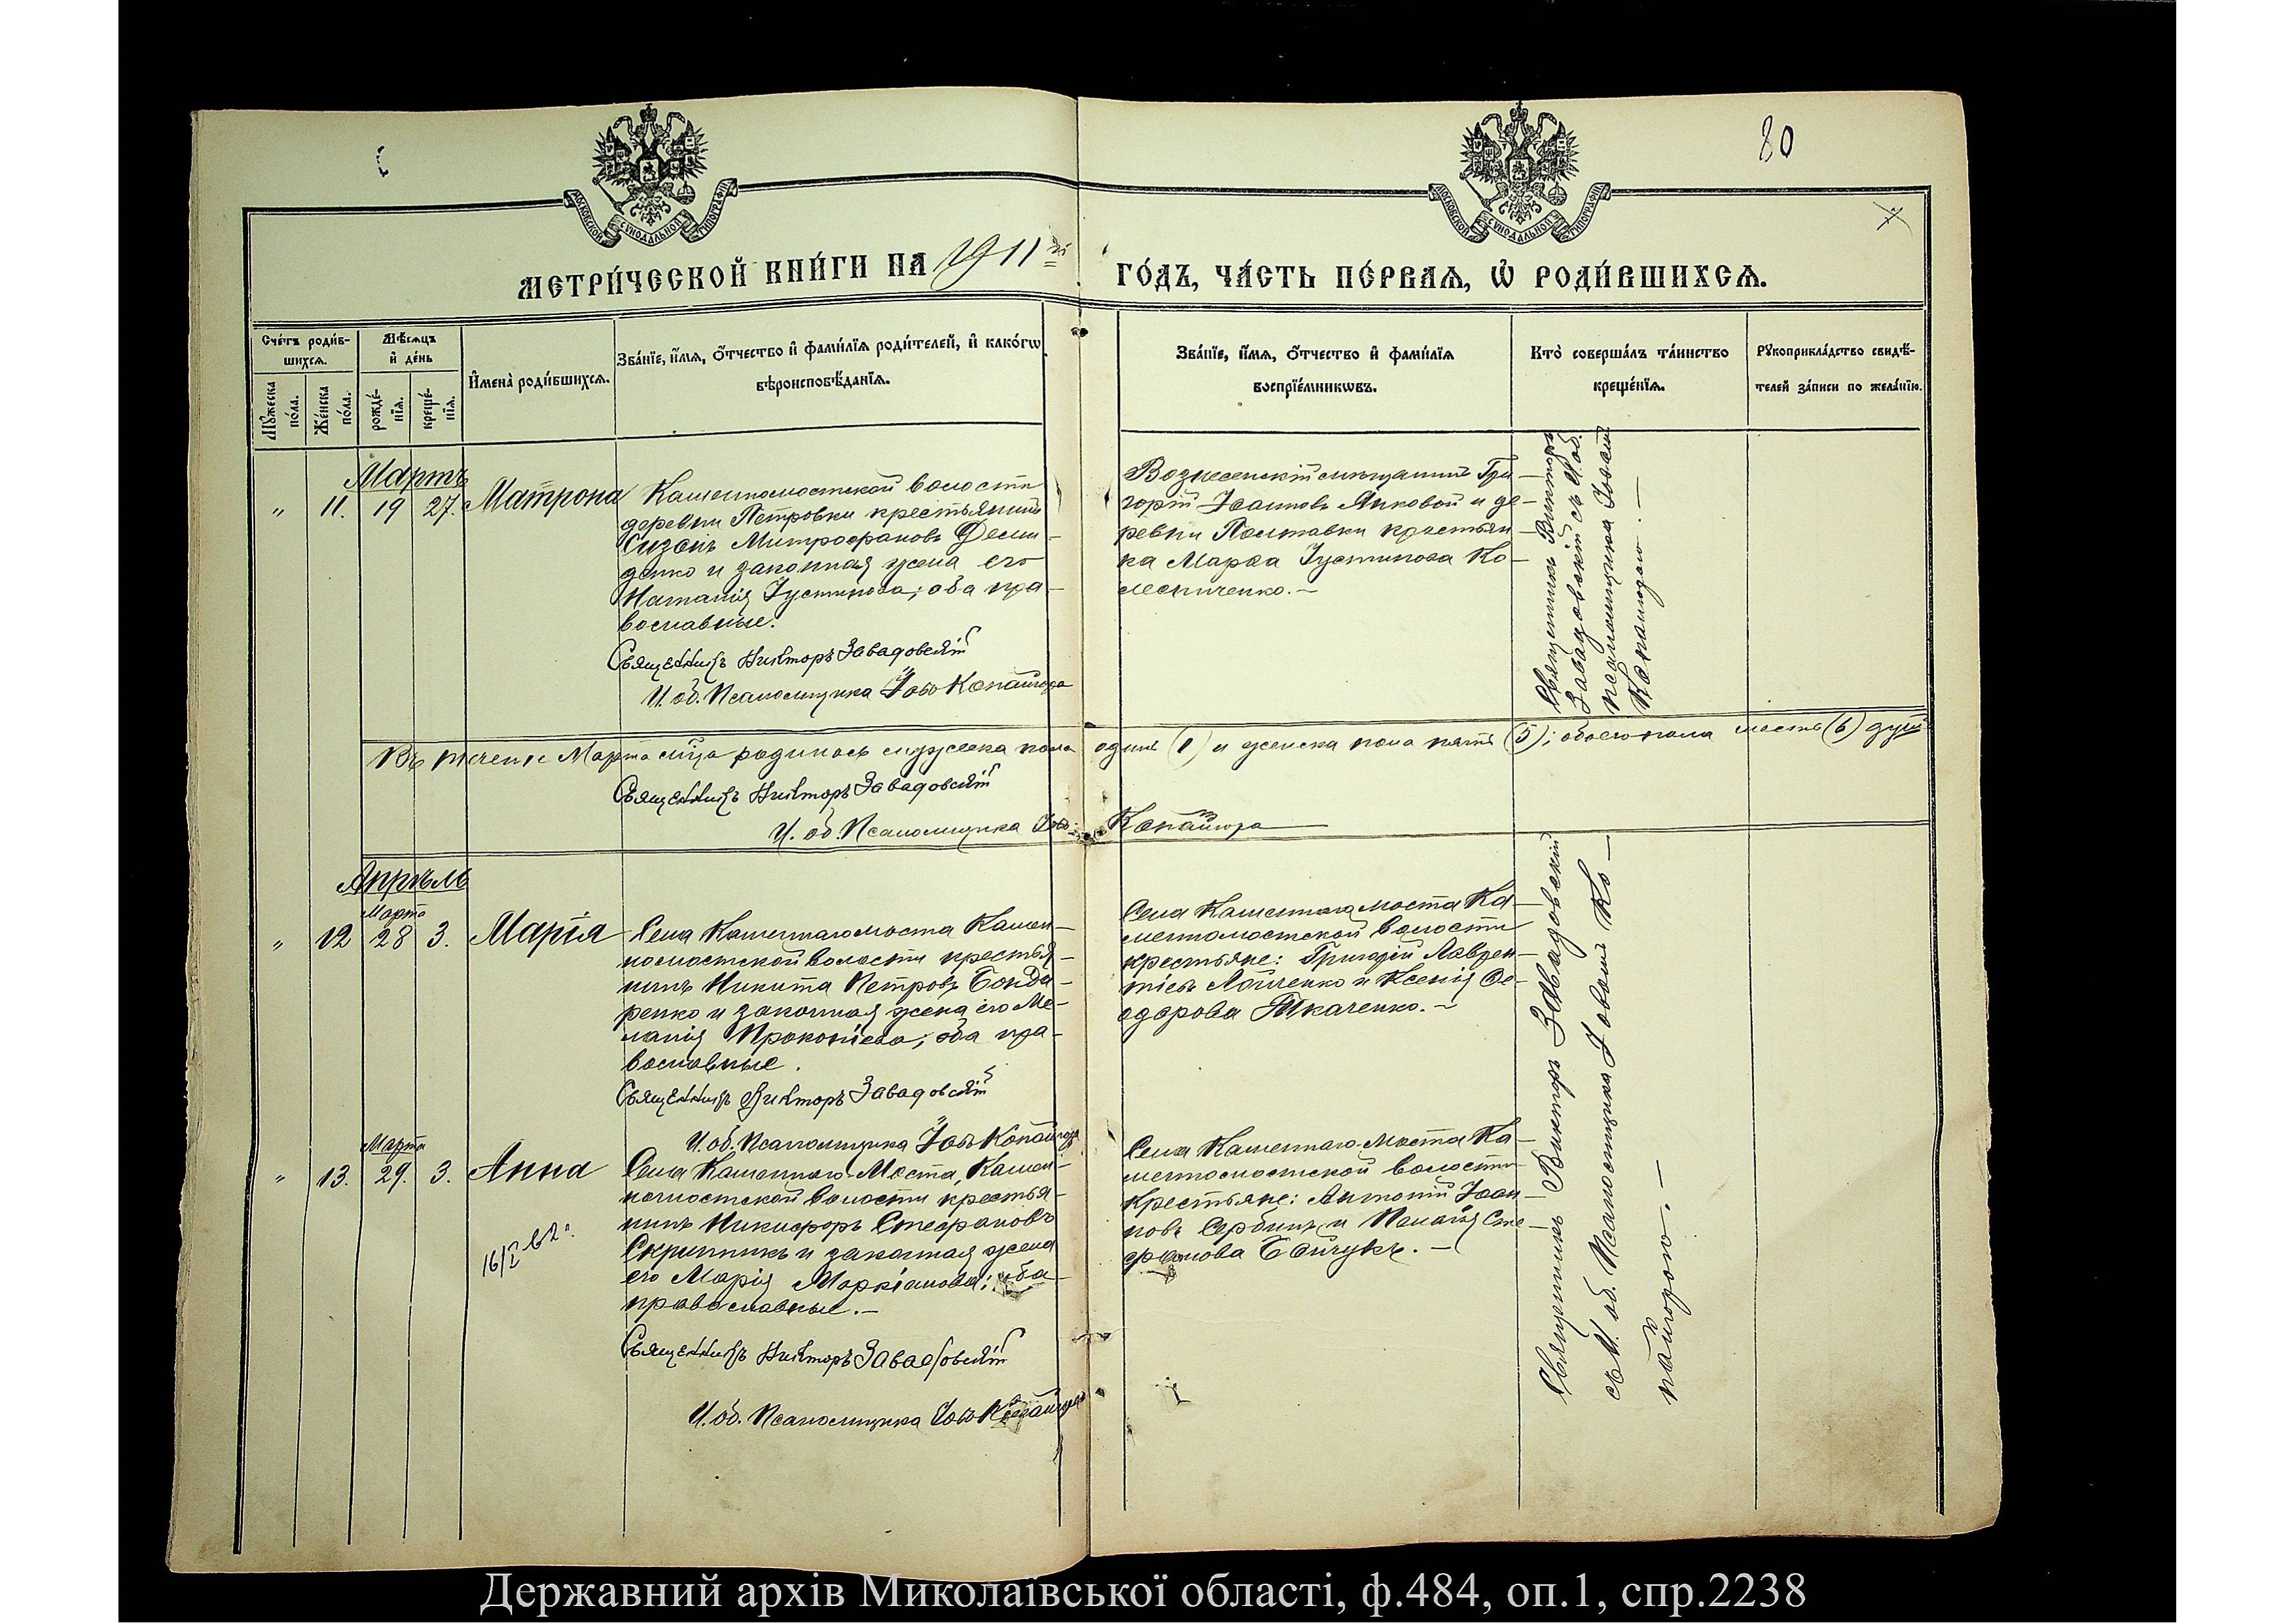 80
МОСКОВСКОЙ СУНОДАЛЬНОЙ ТИПОГРАФІИ
МОСКОВСКОЙ СУНОДАЛЬНОЙ ТИПОГРАФІИ
МЕТРИ́ЧЕСКОЙ КНИ́ГИ НА 1911й
ГО́ДЪ, ЧА́СТЬ ПЕ́РВАѦ, Ѡ҆ РОДИ́ВШИХСѦ.
Сче́тъ роди́в-
шихсѧ.
Мꙋ́жеска по́ла.
Же́нска по́ла.
Мѣ́сѧцъ
и҆ де́нь
рожде́-
нїѧ.
креще́-
нїѧ.
И҆мена̀ роди́вшихсѧ.
Зва́нїе, и҆́мѧ, ѻ҆́тчество и҆ фами́лїѧ роди́телей, и҆ како́гѡ
вѣроисповѣ́данїѧ.
Зва́нїе, и҆́мѧ, ѻ҆́тчество и҆ фами́лїѧ
воспрїе́мникѡвъ.
Кто̀ соверша́лъ та́инство
креще́нїѧ.
Рꙋкоприкла́дство свидѣ́-
телей за́писи по жела́нїю.
Мартъ
" 11. 19 27. Матрона
Каменномостской волости
деревни Петровки крестьянинъ
Сизонъ Митрофановъ Деми-
денко и законная жена его
Наталія Іустинова; оба пра-
вославные.
Священникъ Викторъ Завадовскій
И. об. Псаломщика Іовъ Копайгора
Вознесенскій мѣщанинъ Гри-
горій Іоанновъ Янковой и де-
ревни Полтавки крестьян-
ка Марѳа Іустинова Ко-
лесниченко.-
Священникъ Викторъ
Завадовскій съ И. об.
псаломщика Іовомъ
Копайгорою.-
Въ теченіе Марта мѣсяца родилось мужеска пола одинъ (1) и женска пола пять (5); обоего пола шесть (6) душъ
Священникъ Викторъ Завадовскій
И. об. Псаломщика Іовъ Копайгора
Апрѣль
Марта
" 12 28 3. Марія
Села Каменнаго моста Камен-
номостской волости крестья-
нинъ Никита Петровъ Бонда-
ренко и законная жена его Ме-
ланія Прокопіева; оба пра-
вославные.
Священникъ Викторъ Завадовскій
И. об. Псаломщика Іовъ Копайгора
Села Каменнаго моста Ка-
менномостской волости
крестьяне: Григорій Лаврен-
тіевъ и Ксенія Ѳе-
одорова Ткаченко.-
Марта
" 13. 29. 3. Анна
Села Каменнаго-Моста, Камен-
номостской волости крестья-
нинъ Никифоръ Стефановъ
Скрипникъ и законная жена
его Марія Маркіанова; оба
православные.-
Священникъ Викторъ Завадовскій
И. об. Псаломщика Іовъ Копайгора
Села Каменнаго-Моста Ка-
менномостской волости
крестьяне: Антоній Іоан-
новъ Сербинъ и Пелагія Сте-
фанова Бойчукъ.-
Священникъ Викторъ Завадовскій
съ И. об. Псаломщика Іовомъ Ко-
пайгорою.-
Державний архів Миколаївської області, ф.484, оп.1, спр.2238